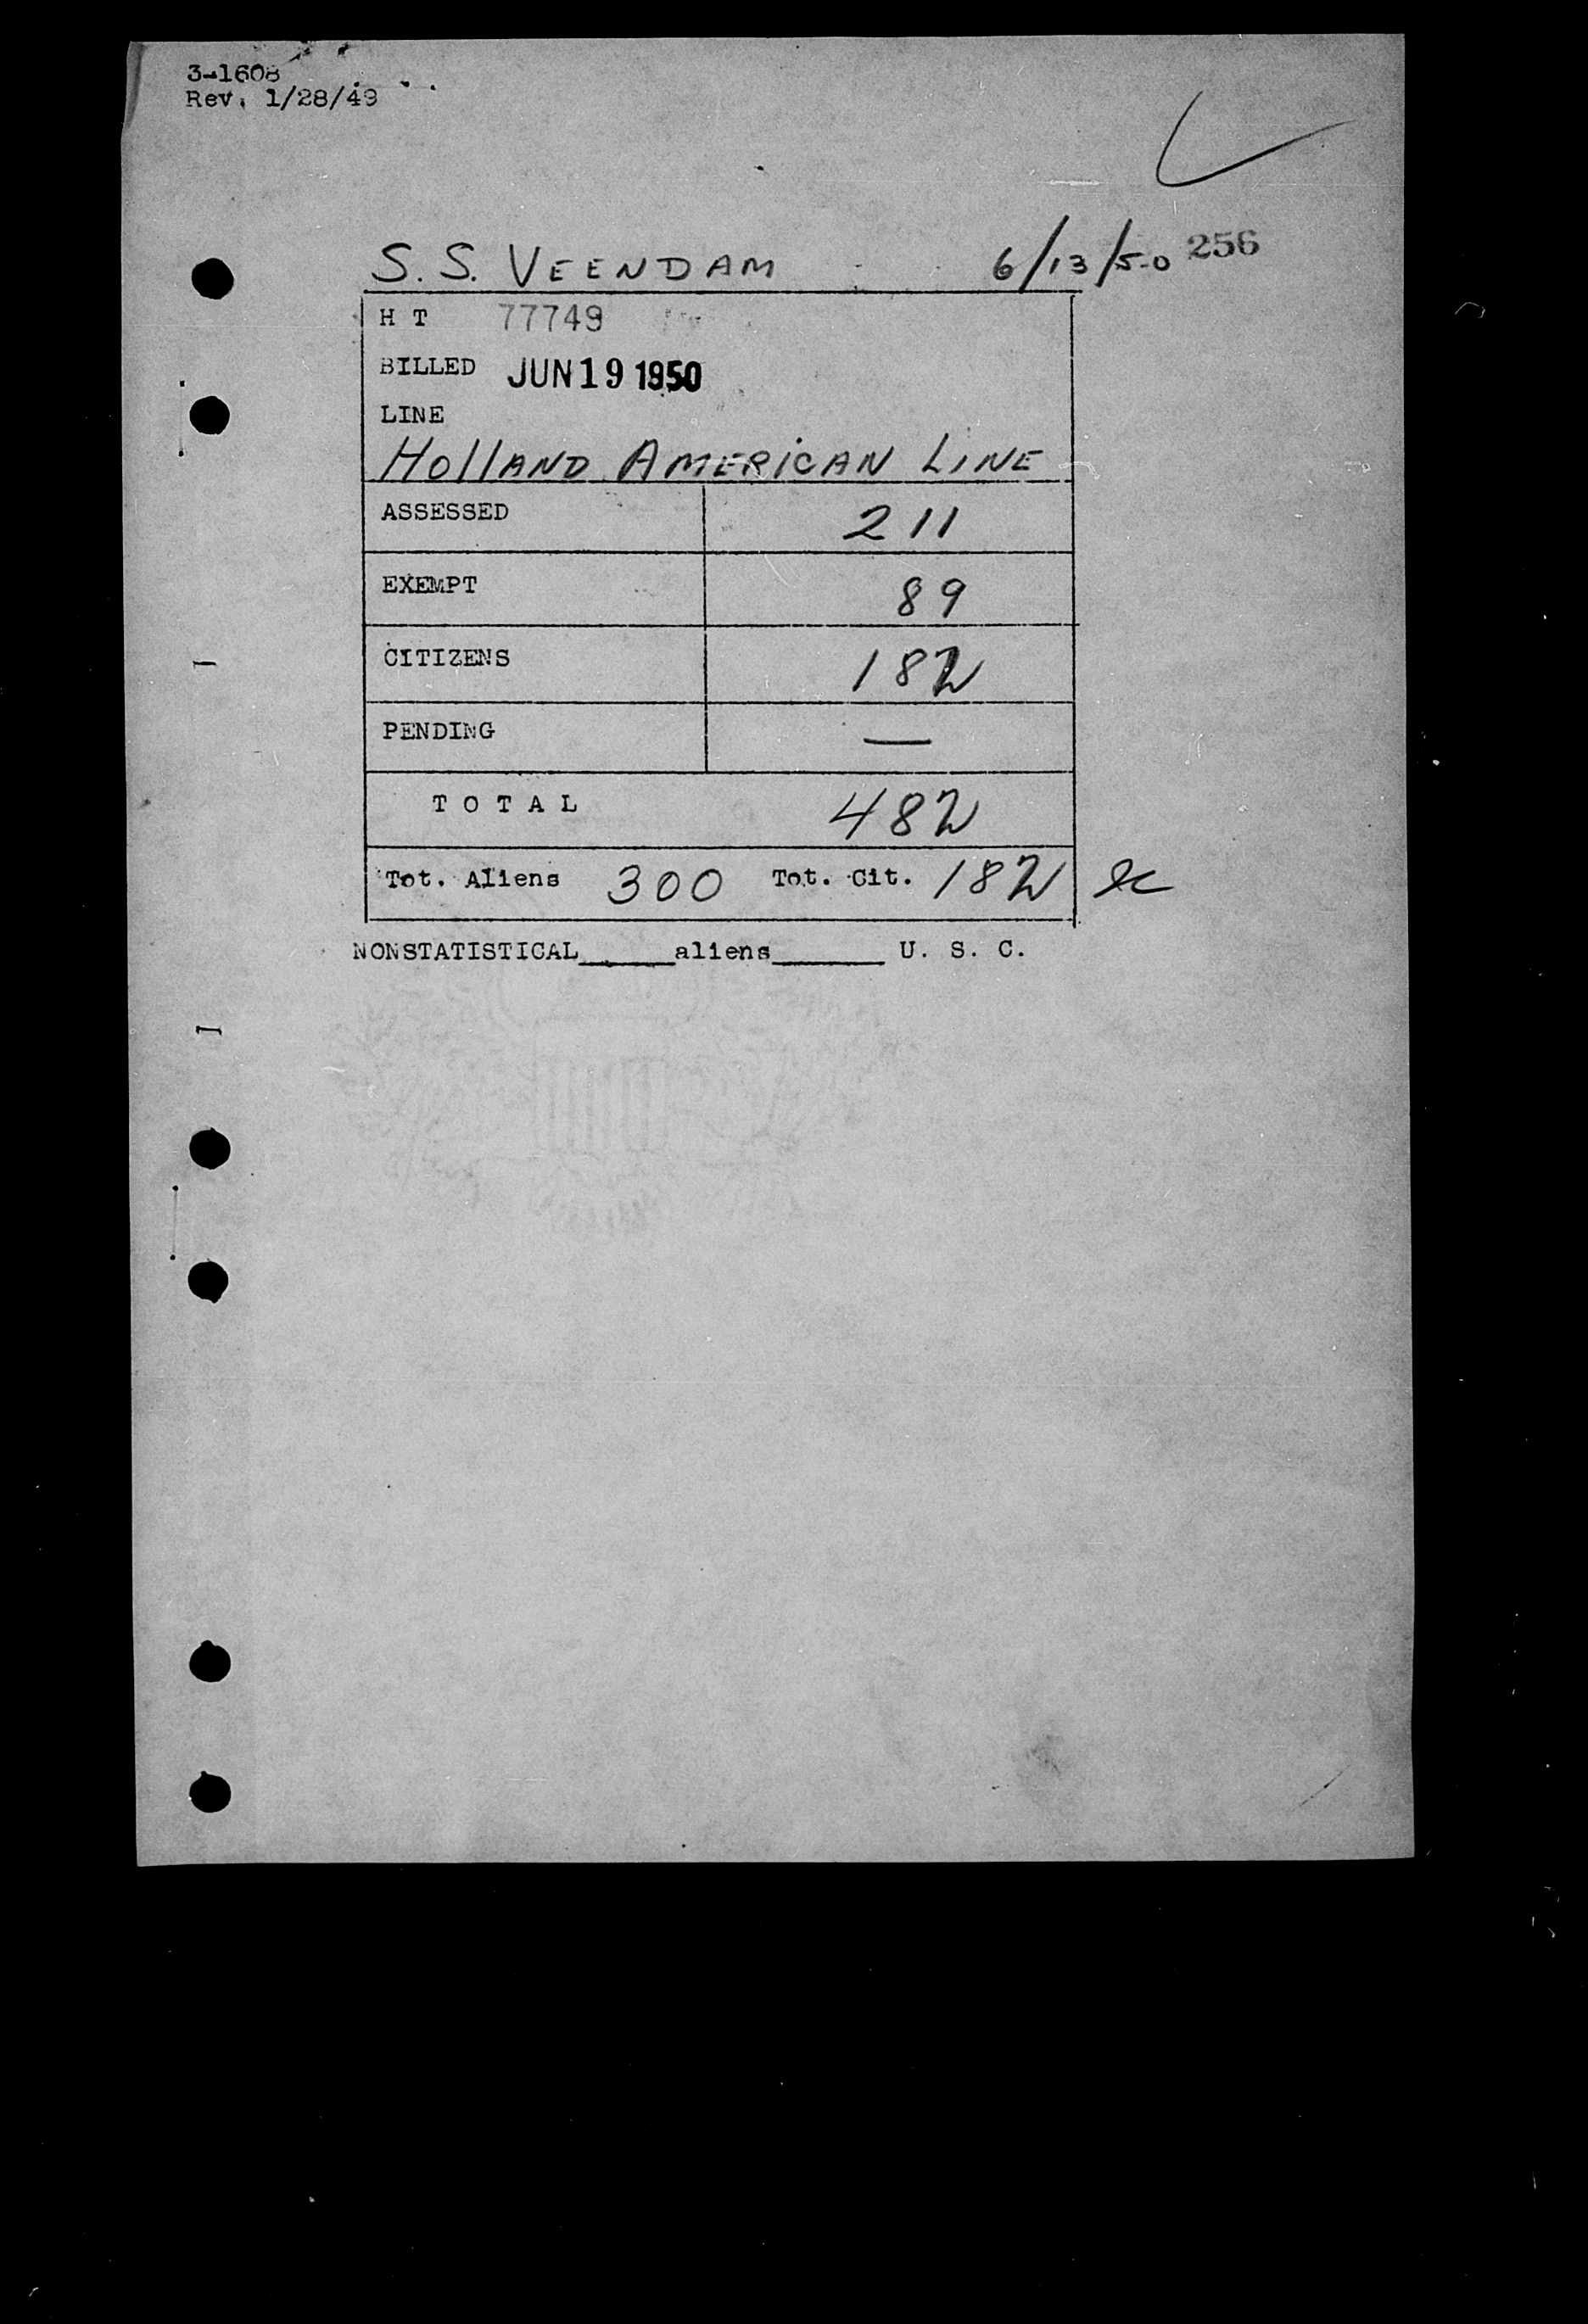 3-1608
Rev. 1/28/49
S. S. VEENDAM 6/13/50 256
H T 77749
BILLED JUN 19 1950
LINE
HOLLAND AMERICAN LINE
ASSESSED 211
EXEMPT 89
CITIZENS 182
PENDING —
T O T A L 482
Tot. Aliens 300 Tot. Cit. 182
NONSTATISTICAL______aliens_______ U. S. C.